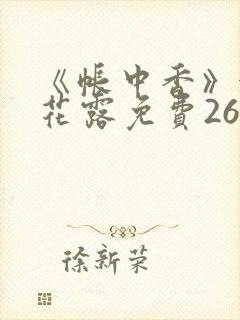 《帐中香》
花露免費26
徐新荣